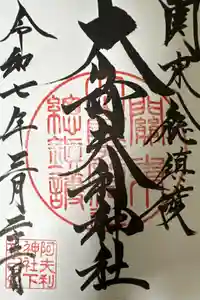 関東総鎮護
大山阿夫利神社
令和七年三月
關東
總鎮護
阿夫利
神社下